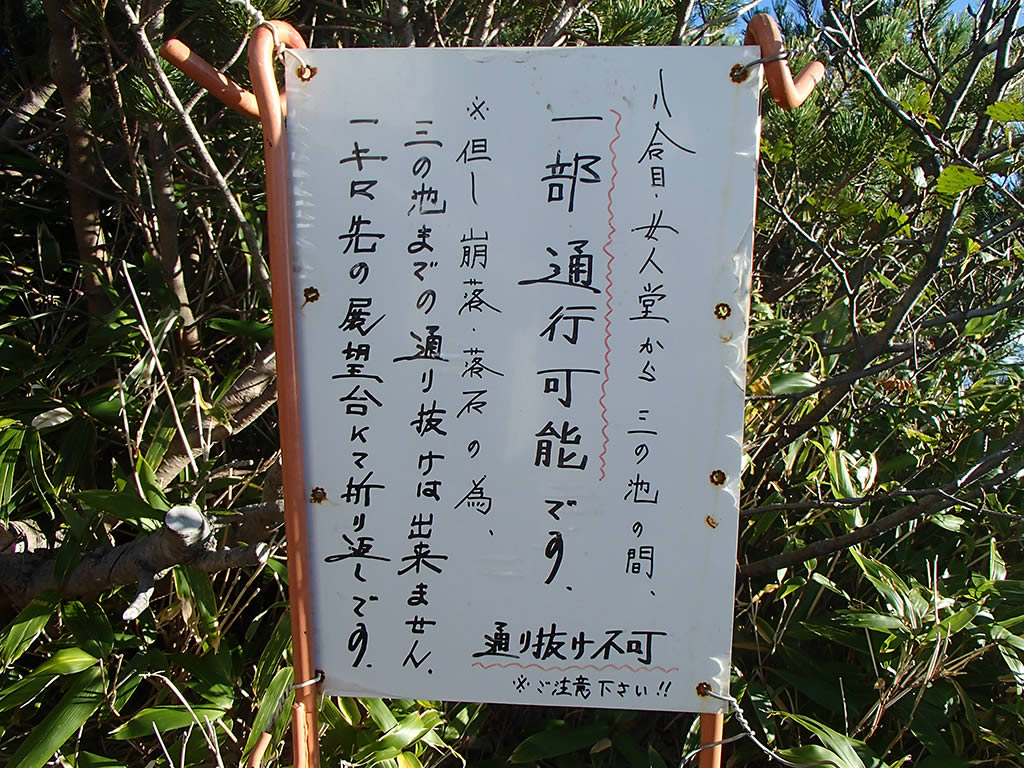 八合目・女人堂から三の池の間、
一部通行可能です.
※但し崩落・落石の為、
三の池までの通り抜けは出来ません.
一キロ先の展望台にて折り返しです.
通り抜け不可
※ご注意下さい!!